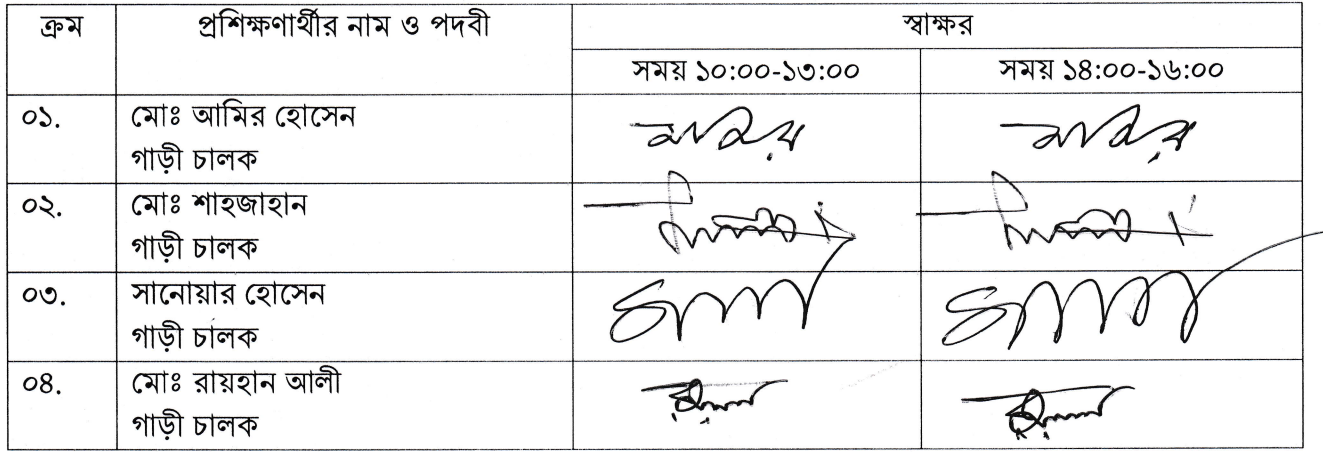 ক্রম প্রশিক্ষণার্থীর নাম ও পদবী স্বাক্ষর
সময় ১০:০০-১৩:০০ সময় ১৪:০০-১৬:০০
০১. মোঃ আমির হোসেন
গাড়ী চালক
০২. মোঃ শাহজাহান
গাড়ী চালক
০৩. সানোয়ার হোসেন
গাড়ী চালক
০৪. মোঃ রায়হান আলী
গাড়ী চালক